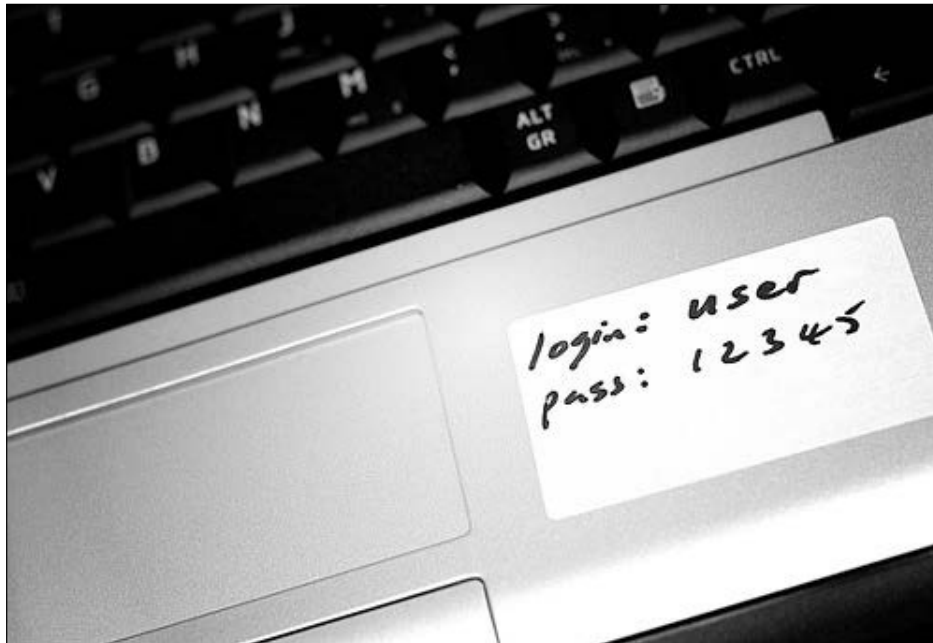 G H J
V B N M
ALT
GR
CTRL
login: user
pass: 12345